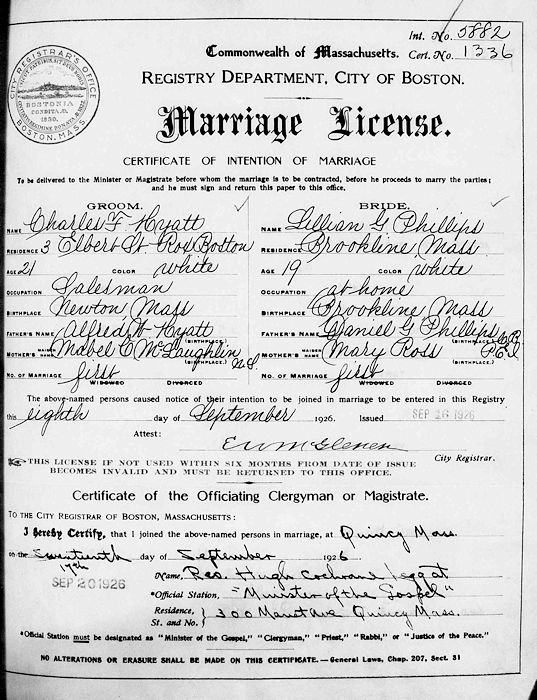 Int. No. 5882
Commonwealth of Massachusetts. Cert. No. 1336
REGISTRY DEPARTMENT, CITY OF BOSTON.
CITY REGISTRAR'S OFFICE
BOSTONIA
CONDITA A.D.
1630.
BOSTON, MASS.
Marriage License.
CERTIFICATE OF INTENTION OF MARRIAGE
To be delivered to the Minister or Magistrate before whom the marriage is to be contracted, before he proceeds to marry the parties;
and he must sign and return this paper to this office.
GROOM. BRIDE.
NAME Charles F Hyatt NAME Lillian G Phillips
RESIDENCE 3 Elbert St Rox Boston RESIDENCE Brookline Mass
AGE 21 COLOR white AGE 19 COLOR white
OCCUPATION Salesman OCCUPATION at home
BIRTHPLACE Newton Mass BIRTHPLACE Brookline Mass
FATHER'S NAME Alfred W Hyatt (BIRTHPLACE.) FATHER'S NAME Daniel G Phillips (BIRTHPLACE.)
MOTHER'S MAIDEN NAME Mabel C McLaughlin (BIRTHPLACE.) N.S. MOTHER'S MAIDEN NAME Mary Ross (BIRTHPLACE.) P.E.I
NO. OF MARRIAGE first NO. OF MARRIAGE first
WIDOWED DIVORCED WIDOWED DIVORCED
The above-named persons caused notice of their intention to be joined in marriage to be entered in this Registry
this eighth day of September 1926. Issued SEP 16 1926
Attest:
EW McGlenen City Registrar.
THIS LICENSE IF NOT USED WITHIN SIX MONTHS FROM DATE OF ISSUE
BECOMES INVALID AND MUST BE RETURNED TO THIS OFFICE.
Certificate of the Officiating Clergyman or Magistrate.
TO THE CITY REGISTRAR OF BOSTON, MASSACHUSETTS:
I hereby Certify, that I joined the above-named persons in marriage, at Quincy Mass.
on the seventeenth day of September 1926
17th
SEP 20 1926
Name, Rev. Hugh Cochrane Leggat
*Official Station, "Minister of the Gospel"
Residence, St. and No. } 300 Ave Quincy Mass.
*Official Station must be designated as "Minister of the Gospel," "Clergyman," "Priest," "Rabbi," or "Justice of the Peace."
NO ALTERATIONS OR ERASURE SHALL BE MADE ON THIS CERTIFICATE.—General Laws, Chap. 207, Sect. 31